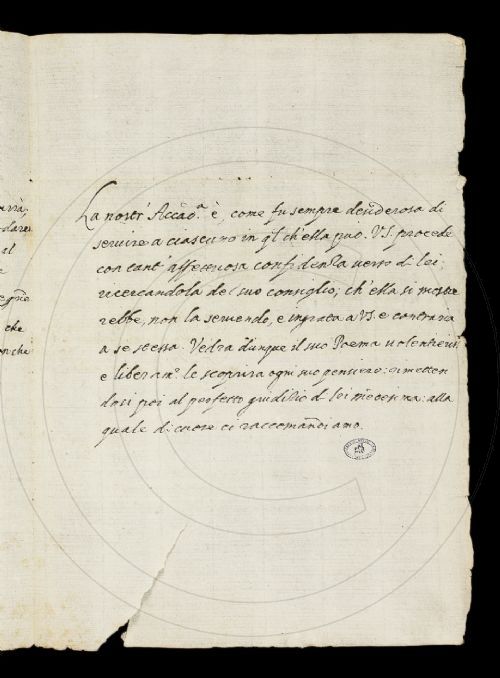 La nostr' Accad.ª è, come fu sempre desiderosa di
servire a ciascuno in ql ch'ella può. V.S. procede
con tant' affettuosa confidenza verso di lei;
ricercandola del suo consiglio; ch'ella si mostre
rebbe, non la servendo, e ingrata a V.S. e contraria
a se stessa. Vedrà dunque il suo Poema volentieri:
e liberam.e le scoprirà ogni suo pensiero: rimetten
dosi poi al perfetto giudizio di lei medesima: alla
quale di cuore ci raccomandiamo.
dare
al
che